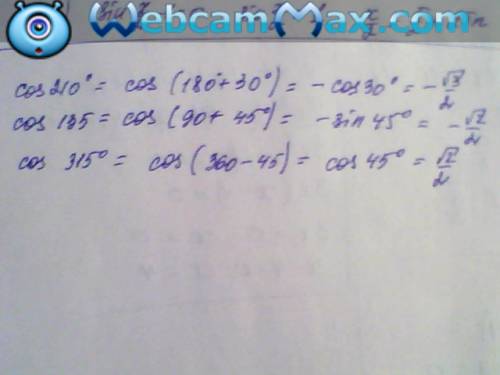 WebcamMax.com
cos 210° = cos (180° + 30°) = - cos 30° = - √3/2
cos 135 = cos (90 + 45°) = - sin 45° = - √2/2
cos 315° = cos (360 - 45) = cos 45° = √2/2